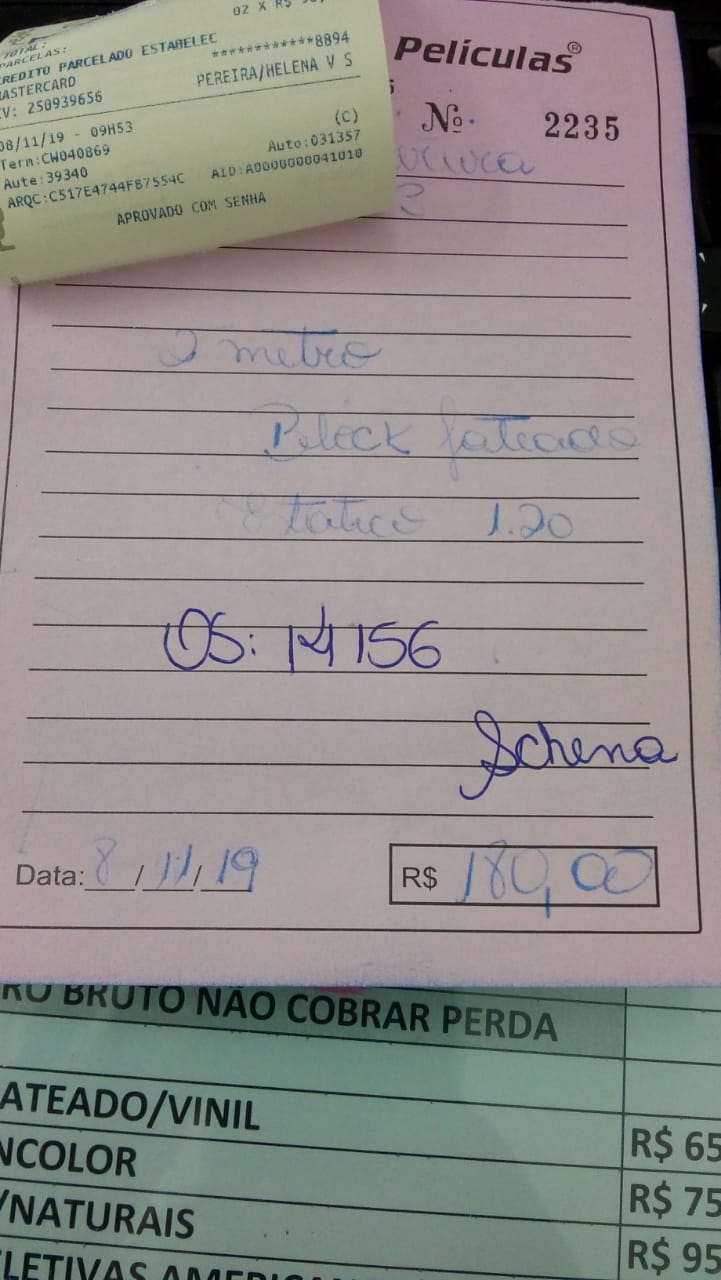 02 X R$
TOTAL:
PARCELAS:
CREDITO PARCELADO ESTABELEC
************8894
MASTERCARD
PEREIRA/HELENA V S
CV: 250939656
08/11/19 - 09H53
(C)
Term:CW040869
Auto:031357
Aute:39340
AID:A0000000041010
ARQC:C517E4744F87554C
APROVADO COM SENHA
Películas®
Nº 2235
2 metro
Block fateado
Etatico 1.20
OS: 14156
Schena
Data: 8/11/19
R$ 180,00
RO BRUTO NÃO COBRAR PERDA
ATEADO/VINIL
R$ 65
NCOLOR
R$ 75
/NATURAIS
R$ 95